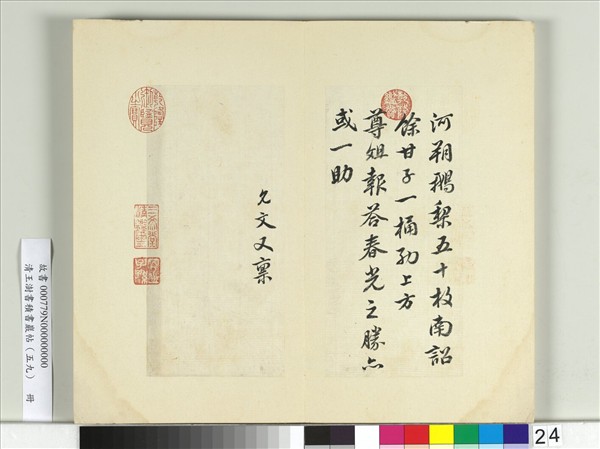 河朔鵝梨五十枚南詔
餘甘子一桶納上方
尊俎報荅春光之勝亦
或一助
允文又稟
故書 000779N000000000
清王澍書積書巖帖（五九） 冊
24